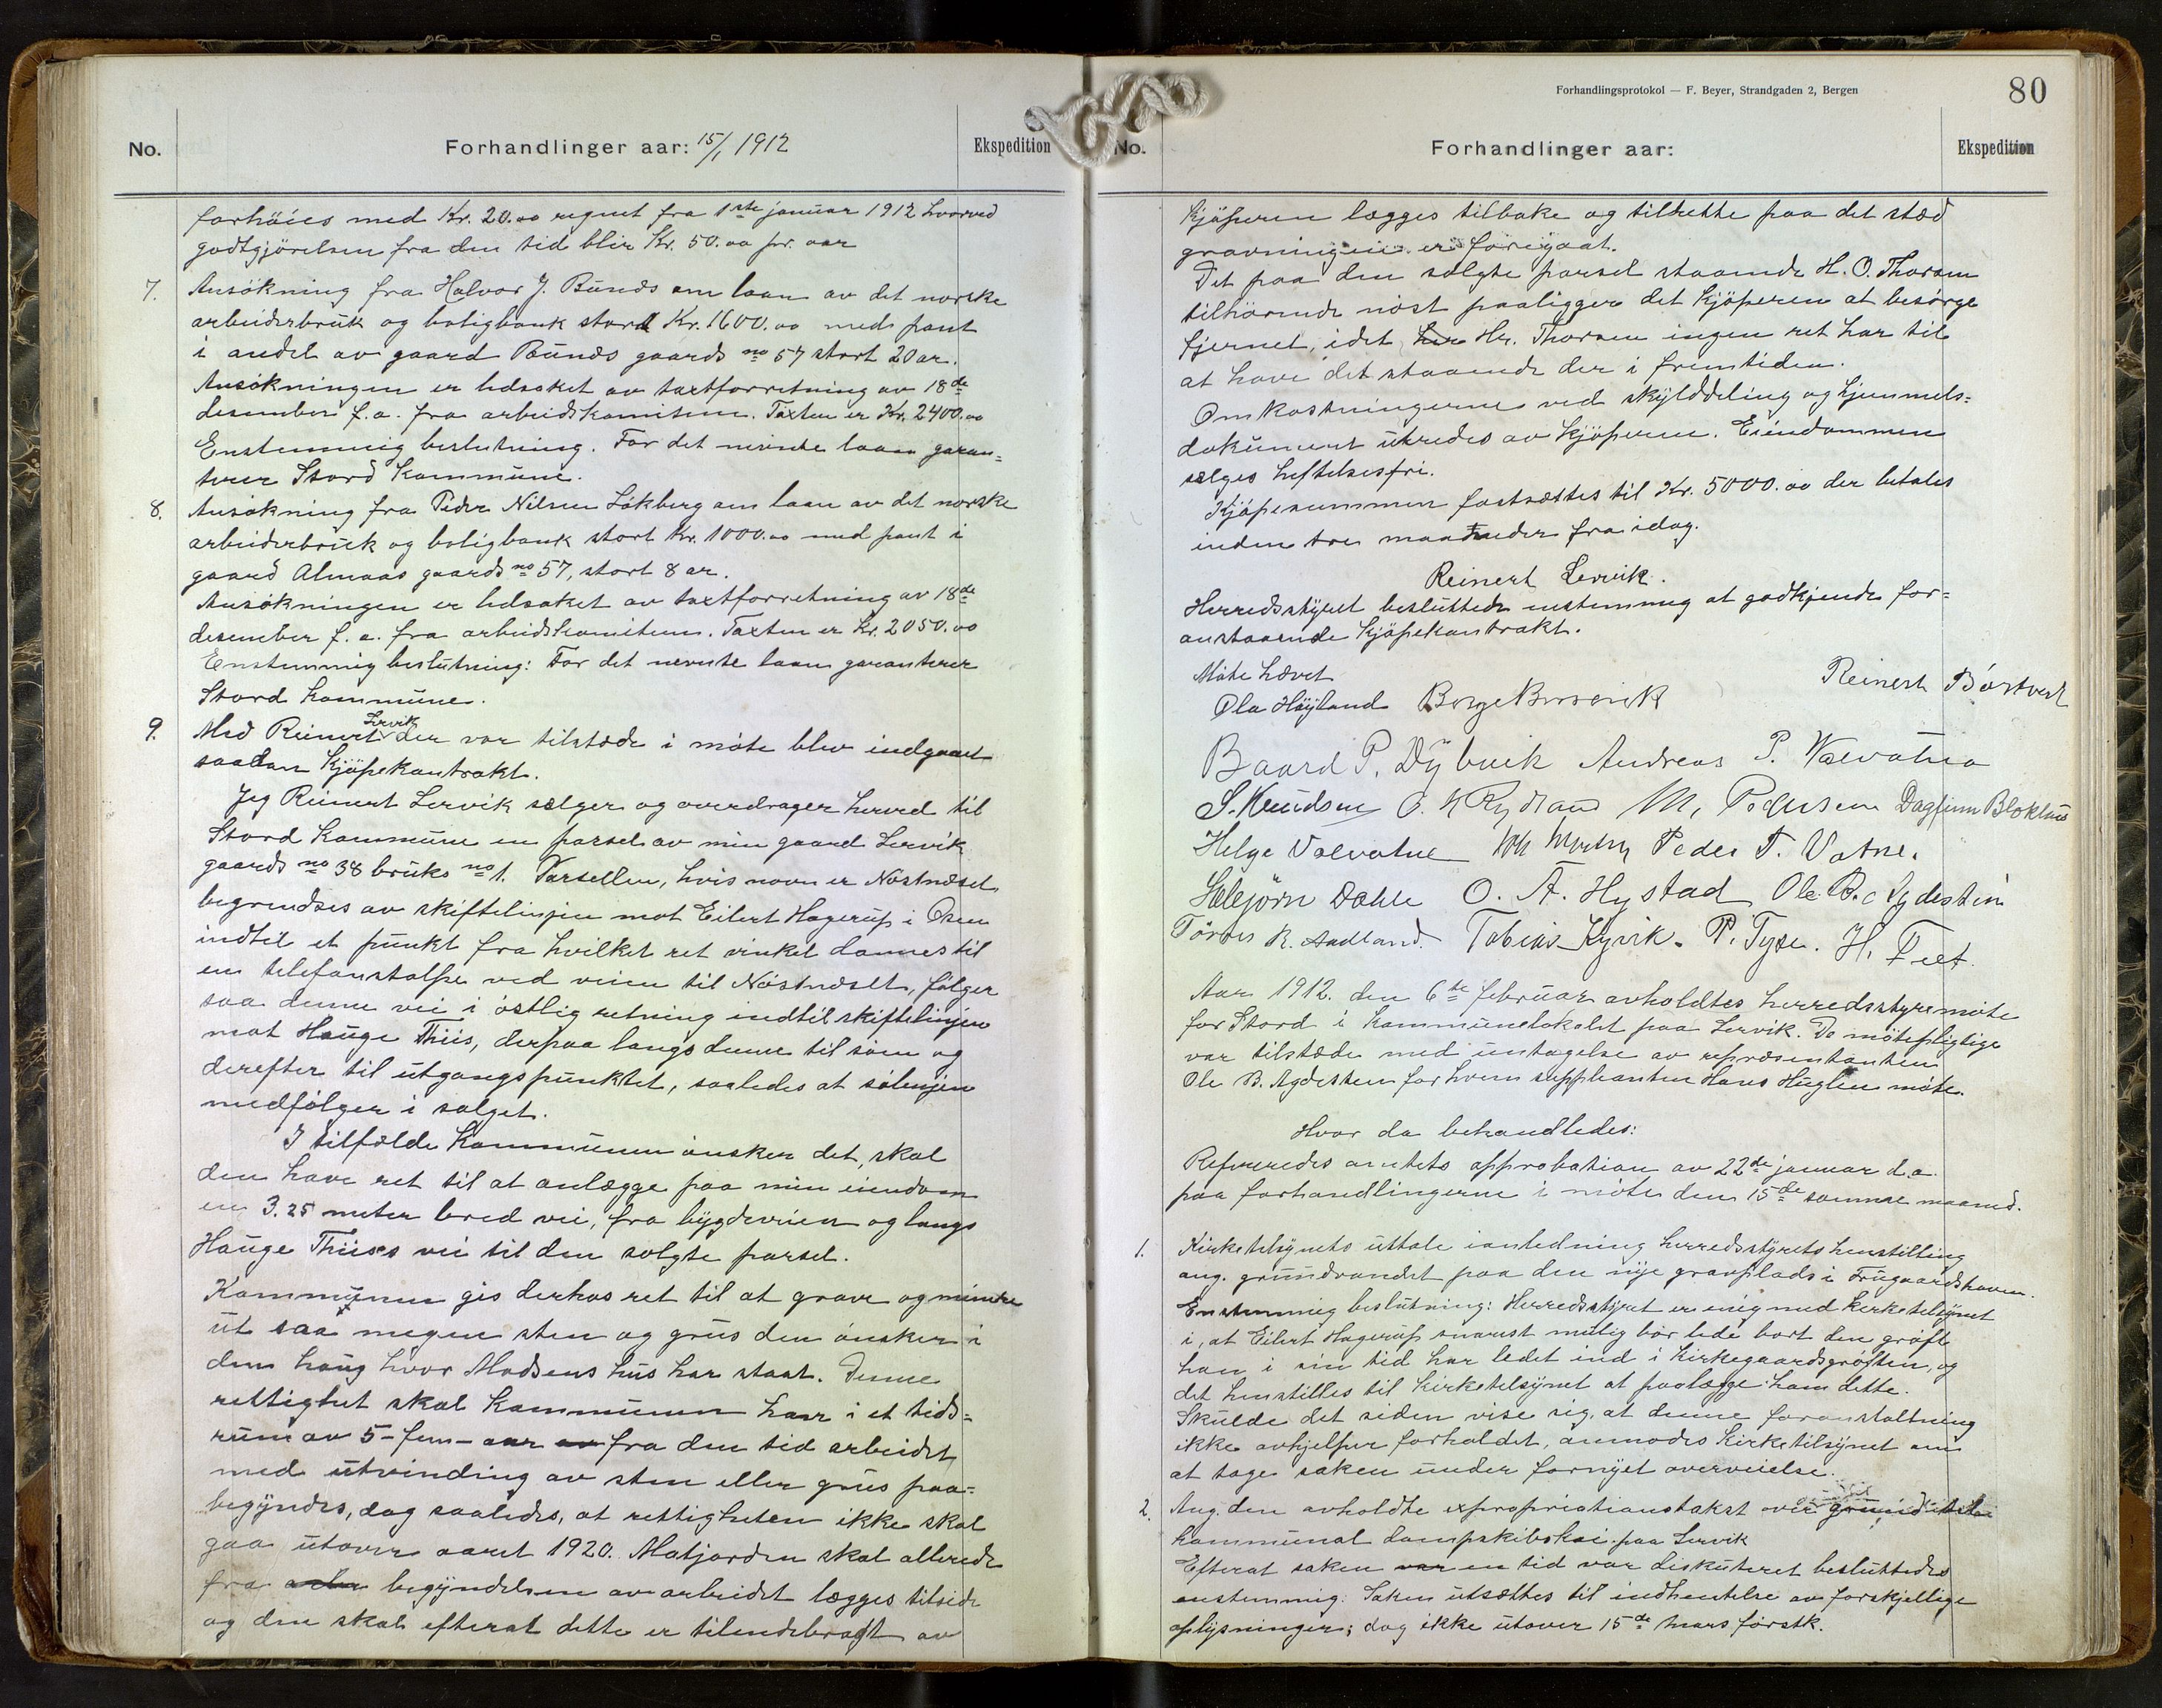 No.
Forhandlinger aar: 15/1 1912
Ekspedition
forhöies med Kr. 20.00 regnet fra 1ste januar 1912 hvorved
godtgjörelsen fra den tid blir Kr. 50.00 pr. aar
7. Ansökning fra Halvor J. Bunds om laan av det norske
arbeiderbruk og boligbank stort Kr. 1600.00 med pant
i andel av gaard Bunds gaards no 57 stort 20 ar.
Ansökningen er ledsaket av taxtforretning av 18de
desember f.a. fra arbeidskomiteen. Taxten er Kr. 2400.00
Enstemmig beslutning. For det nevnte laan garan=
terer Stord kommune.
8. Ansökning fra Peder Nilsen Lökberg om laan av det norske
arbeiderbruk og boligbank stort Kr. 1000.00 med pant i
gaard Almaas gaards no 57, stort 8 ar.
Ansökningen er ledsaket av taxtforretning av 18de
desember f.a. fra arbeidskomiteen. Taxten er Kr. 2050.00
Enstemmig beslutning: For det nevnte laan garanterer
Stord kommune.
9. Med Reinert Lervik der var tilstæde i möte blev indgaaet
saadan kjöpekontrakt.
Jeg Reinert Lervik sælger og overdrager herved til
Stord kommune en parsel av min gaard Lervik
gaards no 38 bruks no 1. Parsellen, hvis navn er Nöstneset
begrendses av skiftelinjen mot Eilert Hagerup i Osen
indtil et punkt fra hvilket ret vinkel dannes til
en telefonstolpe ved veien til Nöstneset, fölger
saa denne vei i östlig retning indtil skiftelinjen
mot Hauge Thiis, derpaa langs denne til söen og
derefter til utgangspunktet, saaledes at sölinjen
medfölger i salget.
I tilfælde kommunen önsker det, skal
den have ret til at anlægge paa min eiendom
en 3.25 meter bred vei, fra bygdeveien og langs
Hauge Thiises vei til den solgte parsel.
Kommunen gis derhos ret til at grave og minere
ut saa megen sten og grus den önsker i
den haug hvor Madsens hus har staat. Denne
rettighet skal kommunen have i et tids=
rum av 5 - fem - aar av fra den tid arbeidet
med utvinding av sten eller grus paa=
begyndes, dog saaledes, at rettigheten ikke skal
gaa utover aaret 1920. Matjorden skal allerede
fra arbe begyndelsen av arbeidet lægges tilside
og den skal efterat dette er tilendebragt av
Forhandlingsprotokol — F. Beyer, Strandgaden 2, Bergen
80
No.
Forhandlinger aar:
Ekspedition
Kjöperen lægges tilbake og tilrette paa det sted
gravningen er foregaat.
Det paa den solgte parsel staaende H. O. Thorsen
tilhörende nöst paaligger det kjöperen at besörge
fjernet, idet her Hr. Thorsen ingen ret har til
at have det staaende der i fremtiden.
Omkostningerne ved skylddeling og hjemmels=
dokument utredes av kjöperen. Eiendommen
sælges heftelsesfri.
Kjöpesummen fastsættes til Kr. 5000.00 der betales
inden tre maaneder fra idag.
Reinert Lervik.
Herredsstyret besluttede enstemmig at godkjende for=
anstaaende kjöpekontrakt.
Möte hævet
Ola Höyland Börge Rosenvik Reinert Börtveit
Baard P. Dybvik Andreas P. Valvatna
S. Knudsen O. H Rydland M. Pedersen Dagfinn Blokhus
Helge Valvatne Peder T. Vatne.
Halbjörn Dahle O. A. Hystad Ole B. Agdestein
Torber R. Aadland. Tobias Kyvik. P. Tyse. H. Feet.
Aar 1912. den 6te februar avholdtes herredsstyremöte
for Stord i kommunelokalet paa Lervik. De mötepligtige
var tilstæde med undtagelse av repræsentanten
Ole B. Agdestein for hvem suppleanten Hans Huglen mötte.
Hvor da behandledes:
Refereredes amtets approbation av 22de januar d.a.
paa forhandlingerne i möte den 15de samme maaned.
1. Kirketilsynets uttale i anledning herredsstyrets henstilling
ang. grundvandet paa den nye gravplads i Frugaardshaven.
Enstemmig beslutning: Herredsstyret er enig med kirketilsynet
i, at Eilert Hagerup snarest mulig bör lede bort den gröft
han i sin tid har ledet ind i kirkegaardsgröften, og
det henstilles til kirketilsynet at paalægge ham dette.
Skulde det siden vise sig, at denne foranstaltning
ikke avhjelper forholdet, anmodes kirketilsynet om
at tage saken under fornyet overveielse.
2. Ang. den avholdte expropriationstakst over grund til
kommunal dampskibskai paa Lervik
Efterat saken var en tid var diskuteret besluttedes
enstemmig: Saken utsættes til indhentelse av forskjellige
oplysninger; dog ikke utover 15de mars förstk.